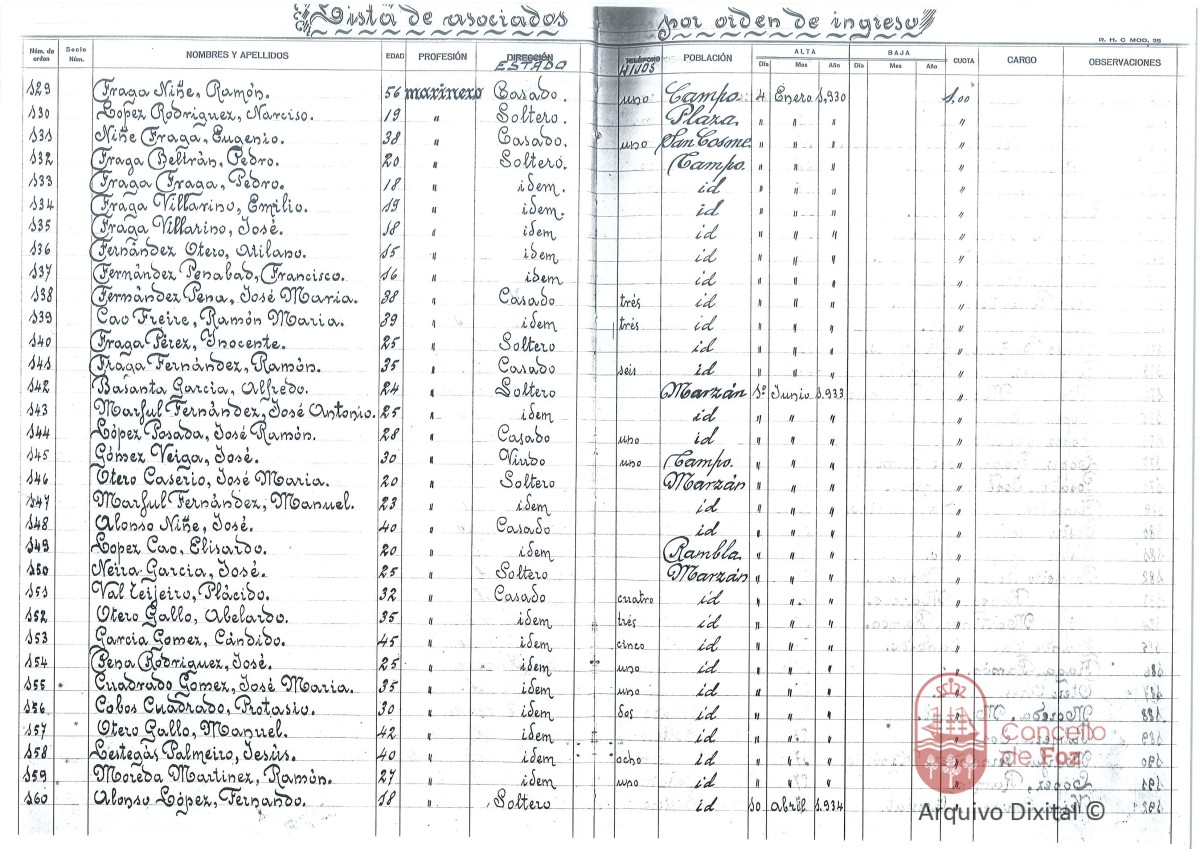 Lista de asociados por orden de ingreso
R. H. C MOD. 95
Núm. de orden Socio Núm. NOMBRES Y APELLIDOS EDAD PROFESIÓN DIRECCIÓN ESTADO TELÉFONO HIJOS POBLACIÓN ALTA Día Mes Año BAJA Día Mes Año CUOTA CARGO OBSERVACIONES
129 Fraga Niñe, Ramón. 56 marinero Casado. uno Campo. 4 Enero 1.930 1,00
130 Lopez Rodriguez, Narciso. 19 " Soltero. Plaza. " " " "
131 Niñe Fraga, Eugenio. 38 " Casado. uno San Cosme. " " " "
132 Fraga Beltrán, Pedro. 20 " Soltero. Campo. " " " "
133 Fraga Fraga, Pedro. 18 " idem. id " " " "
134 Fraga Villarino, Emilio. 19 " idem. id " " " "
135 Fraga Villarino, José. 18 " idem id " " " "
136 Fernández Otero, Atilano. 15 " idem id " " " "
137 Fernández Penabad, Francisco. 16 " idem id " " " "
138 Fernández Pena, José Maria. 38 " Casado trés id " " " "
139 Cao Freire, Ramón Maria. 39 " idem trés id " " " "
140 Fraga Pérez, Inocente. 25 " Soltero id " " " "
141 Fraga Fernández, Ramón. 35 " Casado seis id " " " "
142 Basanta Garcia, Alfredo. 24 " Soltero Marzán 1º Junio 1.933 "
143 Marful Fernández, José Antonio. 25 " idem id " " " "
144 López Posada, José Ramón. 28 " Casado uno id " " " "
145 Gómez Veiga, José. 30 " Viudo uno Campo. " " " "
146 Otero Caserio, José Maria. 20 " Soltero Marzán " " " "
147 Marful Fernández, Manuel. 23 " idem id " " " "
148 Alonso Niñe, José. 40 " Casado id " " " "
149 Lopez Cao, Elisardo. 20 " idem Rambla. " " " "
150 Neira Garcia, José. 25 " Soltero Marzán " " " "
151 Val Teijeiro, Plácido. 32 " Casado cuatro id " " " "
152 Otero Gallo, Abelardo. 35 " idem trés id " " " "
153 Garcia Gomez, Cándido. 45 " idem cinco id " " " "
154 Pena Rodriguez, José. 25 " idem uno id " " " "
155 Cuadrado Gómez, José Maria. 35 " idem uno id " " " "
156 Cobos Cuadrado, Protasio. 30 " idem dos id " " " "
157 Otero Gallo, Manuel. 42 " idem id " " " "
158 Lestegás Palmeiro, Jesús. 40 " idem ocho id " " " "
159 Moreda Martinez, Ramón. 27 " idem uno id " " " "
160 Alonso López, Fernando. 18 " Soltero id 10 abril 1.934 "
Concello de Foz
Arquivo Dixital ©